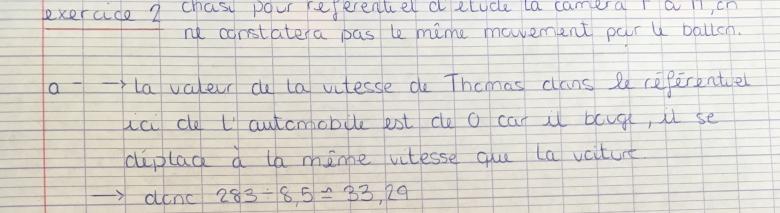 exercice 2 chasi pour référentiel d'étude la caméra
ne constatera pas le même mouvement par le ballon.
a - → La valeur de la vitesse de Thomas dans le référentiel
ici de l'automobile est de 0 car il bouge, il se
déplace à la même vitesse que la voiture
→ donc 283 ÷ 8,5 = 33,29